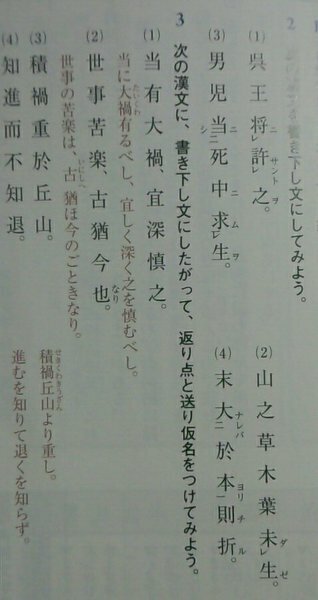 2 次の漢文を書き下し文にしてみよう。
(1) 呉王将ニレ許サントレ之ヲ。
(2) 山之草木葉未ダレ生ゼ。
(3) 男児当ニシ二死中ニ求ム一レ生ヲ。
(4) 末大ナレバ二於本ヨリ一則チ折ル。
3 次の漢文に、書き下し文にしたがって、返り点と送り仮名をつけてみよう。
(1) 当有大禍、宜深慎之。
当に大禍たいくわ有るべし、宜しく深く之を慎むべし。
(2) 世事苦楽、古猶今也なり。
世事の苦楽は、古いにしへ猶ほ今のごときなり。
(3) 積禍重於丘山。
積禍せきくわ丘山きうざんより重し。
(4) 知進而不知退。
進むを知りて退くを知らず。